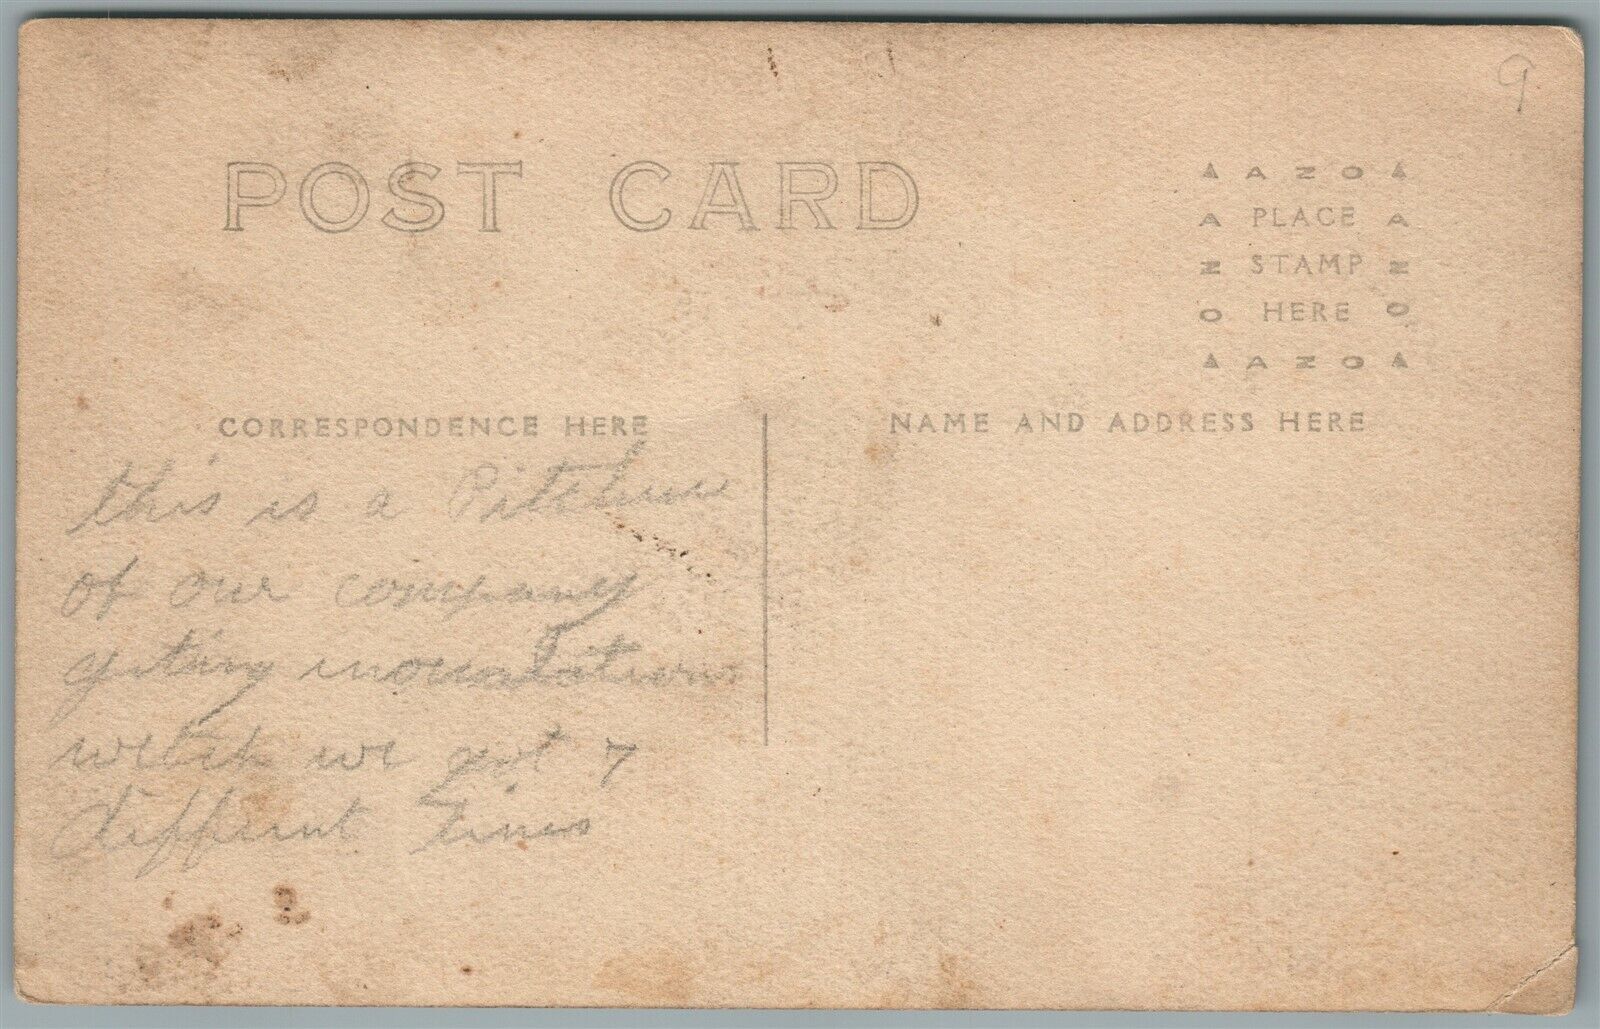 9
POST CARD
▲ A Z O ▲
A PLACE A
Z STAMP Z
O HERE O
▲ A Z O ▲
CORRESPONDENCE HERE
NAME AND ADDRESS HERE
this is a Pitchure
of our company
geting inoculations
welch we got 7
different Times